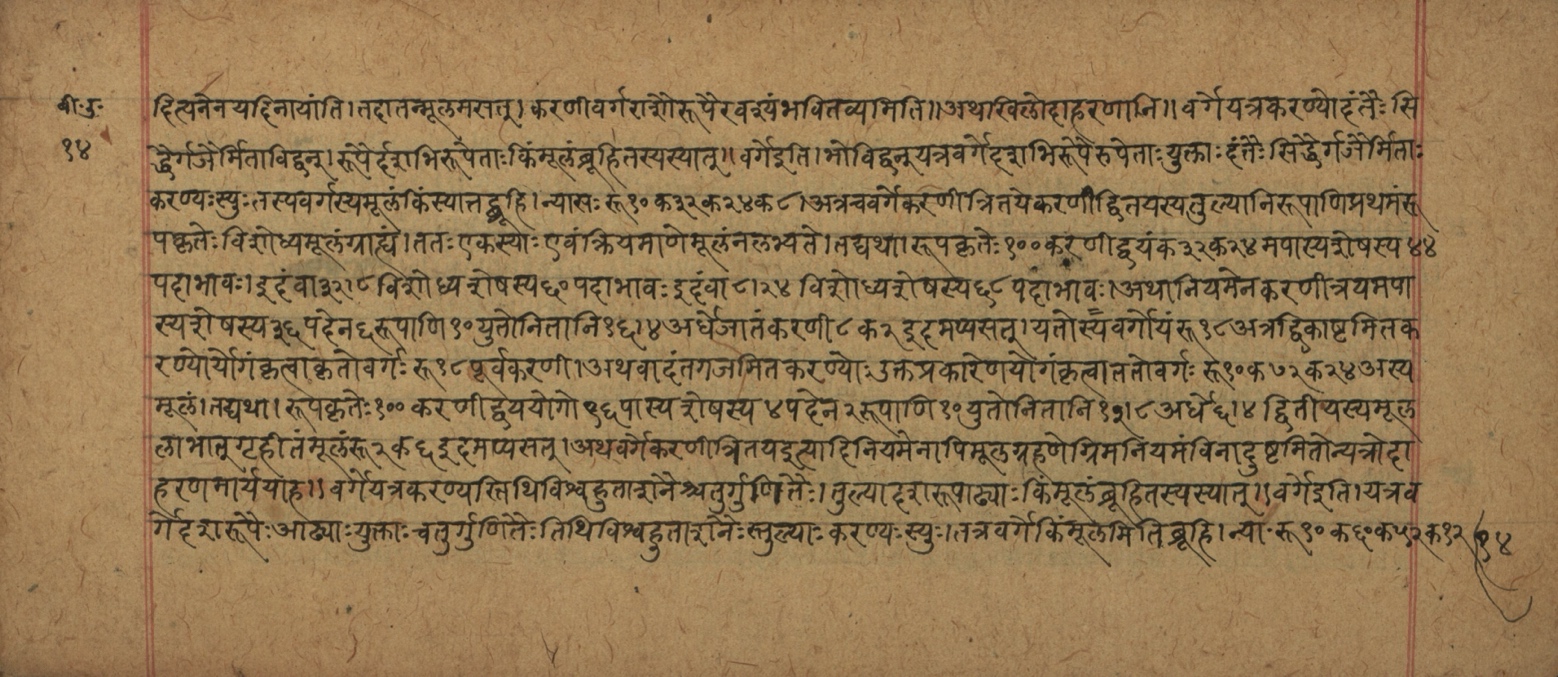 बी॰उ॰
१४
दित्यनेनयदिनायांति।तदातन्मूलमसत्।करणीवर्गराशौरूपैरवश्यंभवितव्यमिति॥अथाखिलोदाहरणानि॥वर्गेयत्रकरण्योदंतैःसि
द्धैर्गजैर्मिताविद्वन्।रूपैर्दशभिरूपेताःकिंमूलंब्रूहितस्यस्यात्॥वर्गेइति।भोविद्वन्यत्रवर्गेदशभिरूपैरुपेताःयुक्ताःदंतैःसिद्धैर्गजैर्मिताः
करण्यःस्युःतस्यवर्गस्यमूलंकिंस्यात्तद्ब्रूहि।न्यासःरू१०क३२क२४क८।अत्रचवर्गेकरणीत्रितयेकरणीद्वितयस्यतुल्यानिरूपाणिप्रथमंरू
पकृतेःविशोध्यमूलंग्राह्यं।ततःएकस्याःएवंक्रियमाणेमूलंनलभ्यते।तद्यथा।रूपकृतेः१००करणीद्वयंक३२क२४मपास्यशेषस्य४४
पदाभावः।इदंवा३२।८विशोध्यशेषस्य६०पदाभावःइदंवा८।२४विशोध्यशेषस्य६८पदाभावः।अथानियमेनकरणीत्रयमपा
स्यशेषस्य३६पदेन६रूपाणि१०युतोनितानि१६।४अर्धेजातंकरणी८क२इदमप्यसत्।यतोस्यवर्गोयंरू१८अत्रद्विकाष्टमितक
रण्योर्योगंकृत्वाकृतोवर्गःरू१८पूर्वकरणी।अथवादंतगजमितकरण्योःउक्तप्रकारेणयोगंकृत्वाततोवर्गःरू१०क७२क२४अस्य
मूलं।तद्यथा।रूपकृतेः१००करणीद्वययोगो९६पास्यशेषस्य४पदेन२रूपाणि१०युतोनितानि१२।८अर्धे६।४द्वितीयस्यमूल
लाभात्गृहीतंमूलंरू२क६इदमप्यसत्।अथवर्गेकरणीत्रितयइत्यादिनियमेनापिमूलग्रहणेग्रिमनियमंविनादुष्टमितोन्यत्रोदा
हरणमार्ययाह।।वर्गेयत्रकरण्यस्तिथिविश्वहुताशनैश्चतुर्गुणितैः।तुल्यादशरूपाढ्याःकिंमूलंब्रूहितस्यस्यात्॥वर्गेइति।यत्रव
र्गेदशरूपैःआढ्याःयुक्ताःचतुर्गुणितैःतिथिविश्वहुताशनैःस्तुल्याःकरण्यःस्युः।तत्रवर्गेकिंमूलमितिब्रूहि।न्याःरू१०क६०क५२क१२
१४